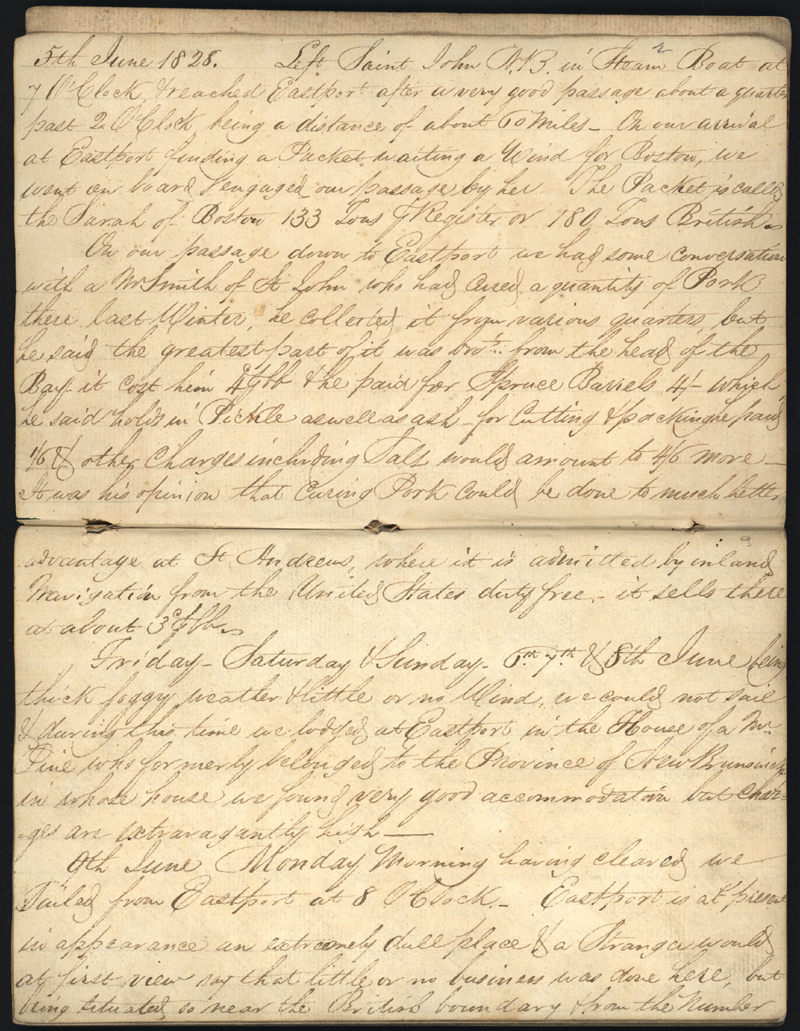 5th June 1828. Left Saint John N.B. in Steam Boat at
7 O'Clock, & reached Eastport after a very good passage about a quarter
past 2 O'Clock, being a distance of about 60 Miles – On our arrival
at Eastport finding a Packet waiting a Wind for Boston, we
went on board & engaged our passage by her. The Packet is called
the Sarah of Boston 133 Tons Register or 180 Tons British
On our passage down to Eastport we had some conversation
with a Mr Smith of St John who had Cured a quantity of Pork
there last Winter, he collected it from various quarters, but
he said the greatest part of it was bro't from the head of the
Bay it cost him 4d lb & he paid for Spruce Barrels 4/- which
he said holds in Pickle as well as ash – for Cutting & packing he paid
1/6 & other Charges including Salt would amount to 4/6 more –
It was his opinion that Curing Pork could be done to much better
advantage at St Andrews, where it is admitted by inland
Navigation from the United States duty free, – it sells there
at about 3d lb
Friday – Saturday & Sunday – 6th 7th & 8th June being
thick foggy weather & little or no Wind, we could not sail
& during this time we lodged at Eastport in the House of a Mr
Pine who formerly belonged to the Province of New Brunswick
in whose house we found very good accommodation but Char-
-ges are extravagantly high —
9th June Monday Morning having cleared we
Sailed from Eastport at 8 O'Clock – Eastport is at present
in appearance an extremely dull place & a Stranger would
at first view say that little or no business was done here, but
being situated so near the British boundary & from the Number